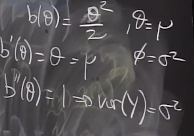 b(θ) = θ²/2 , θ = μ
b'(θ) = θ = μ φ = σ²
b''(θ) = 1 ⇒ var(Y) = σ²